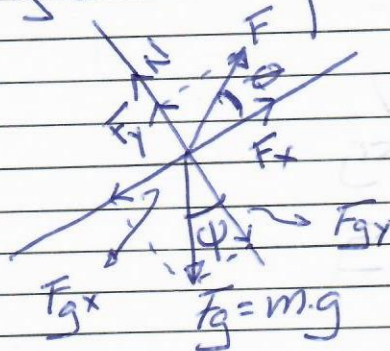 F
N
θ
Fy
Fx
ψ
Fgy
Fgx
Fg = m.g